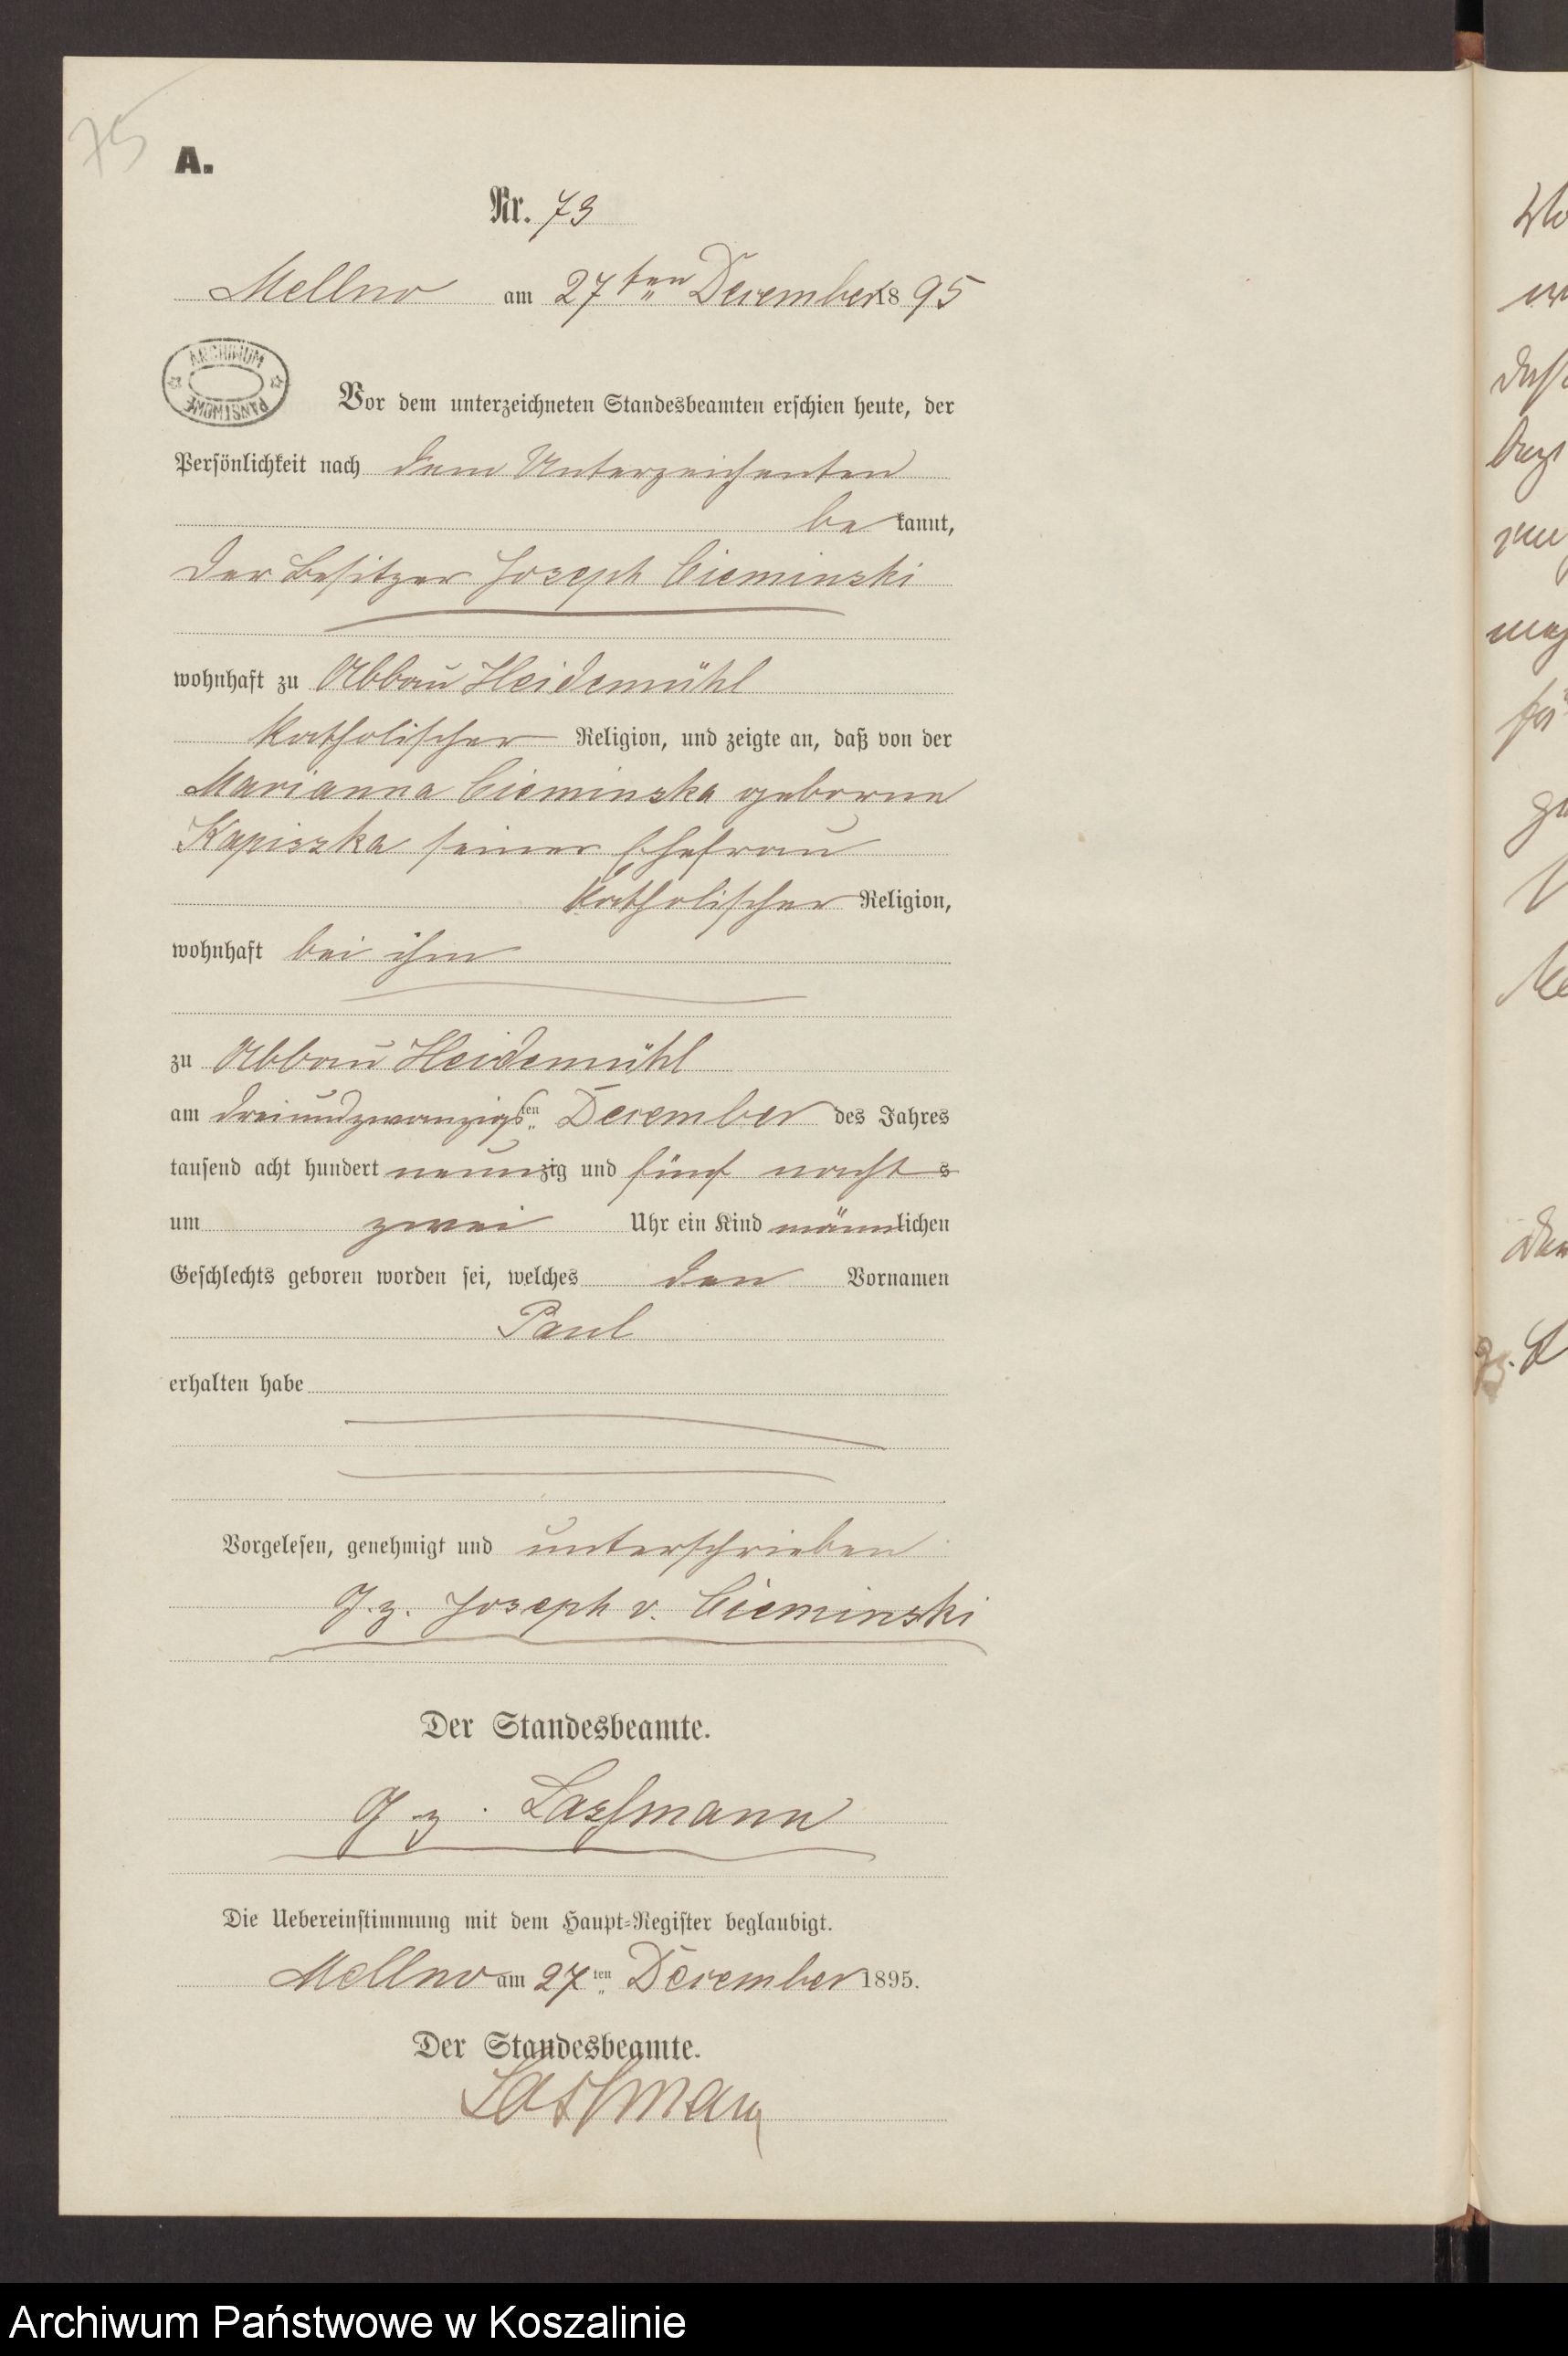 75
A.
Nr. 73
Mellno am 27ten December 1895
ARCHIWUM PAŃSTWOWE
Vor dem unterzeichneten Standesbeamten erschien heute, der
Persönlichkeit nach dem Unterzeichenten
bekannt,
der Besitzer Joseph Cieminski
wohnhaft zu Abbau Heidemühl
katholischer Religion, und zeigte an, daß von der
Marianna Cieminska geborne
Kapiszka seiner Ehefrau
katholischer Religion,
wohnhaft bei ihm
zu Abbau Heidemühl
am dreiundzwanzigsten December des Jahres
tausend acht hundert neunzig und fünf nachts
um zwei Uhr ein Kind männlichen
Geschlechts geboren worden sei, welches den Vornamen
Paul
erhalten habe
Vorgelesen, genehmigt und unterschrieben
Gz. Joseph v. Cieminski
Der Standesbeamte.
Gz. Lassmann
Die Uebereinstimmung mit dem Haupt-Register beglaubigt.
Mellno am 27ten December 1895.
Der Standesbeamte.
Lassmann
Archiwum Państwowe w Koszalinie